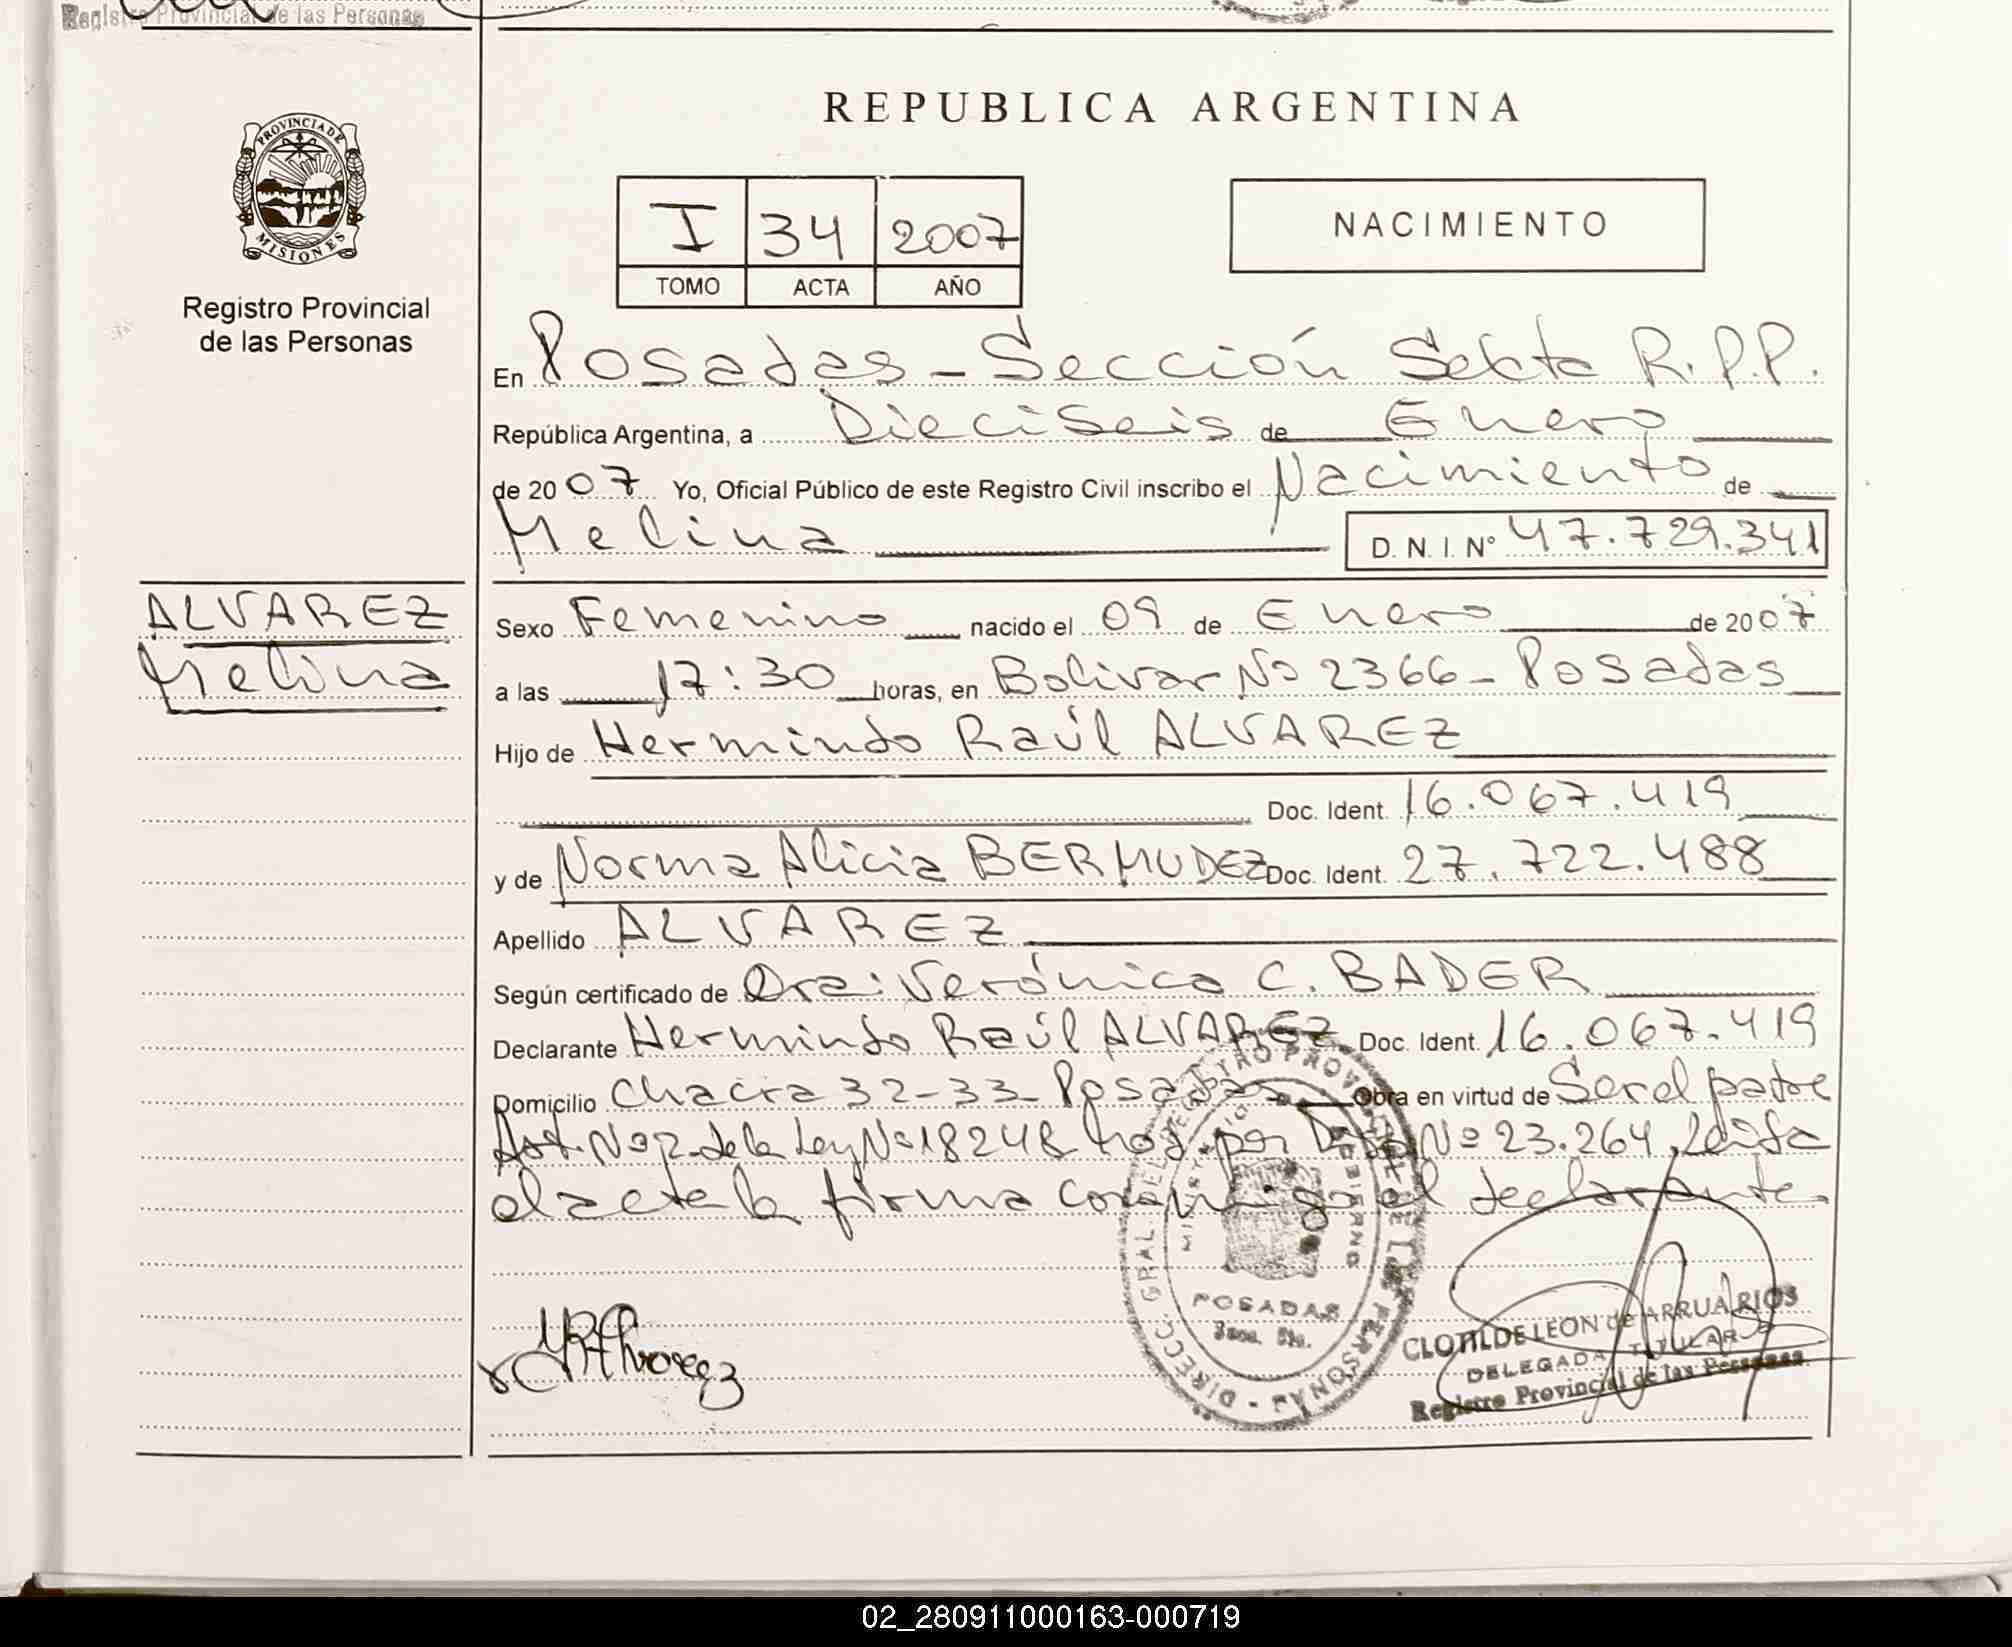 Registro Provincial de las Personas
PROVINCIA DE
MISIONES
Registro Provincial
de las Personas
REPUBLICA ARGENTINA
I 34 2007
TOMO ACTA AÑO
NACIMIENTO
En Posadas - Sección Sexta R.P.P.
República Argentina, a Dieciseis de Enero
de 2007 Yo, Oficial Público de este Registro Civil inscribo el Nacimiento de
Melina D. N. I. Nº 47.729.341
ALVAREZ
Melina
Sexo Femenino nacido el 09 de Enero de 2007
a las 17:30 horas, en Bolivar Nº 2366 - Posadas
Hijo de Hermindo Raúl ALVAREZ
Doc. Ident. 16.067.419
y de Norma Alicia BERMUDEZ Doc. Ident. 27.722.488
Apellido ALVAREZ
Según certificado de Dra: Verónica C. BADER
Declarante Hermindo Raúl ALVAREZ Doc. Ident. 16.067.419
Domicilio Chacra 32-33 Posadas Obra en virtud de Ser el padre
Art. Nº 2 de la Ley Nº 18248 mod. por Nº 23.264, Leida
el acta la firma conmigo el declarante.
DIRECC. GRAL. DEL REGISTRO PROVINCIAL DE LAS PERSONAS
MINISTERIO GOBIERNO
POSADAS
Alvarez
CLOTILDE LEON de ARRUA RIOS
DELEGADA TITULAR
Registro Provincial de las Personas
02_280911000163-000719